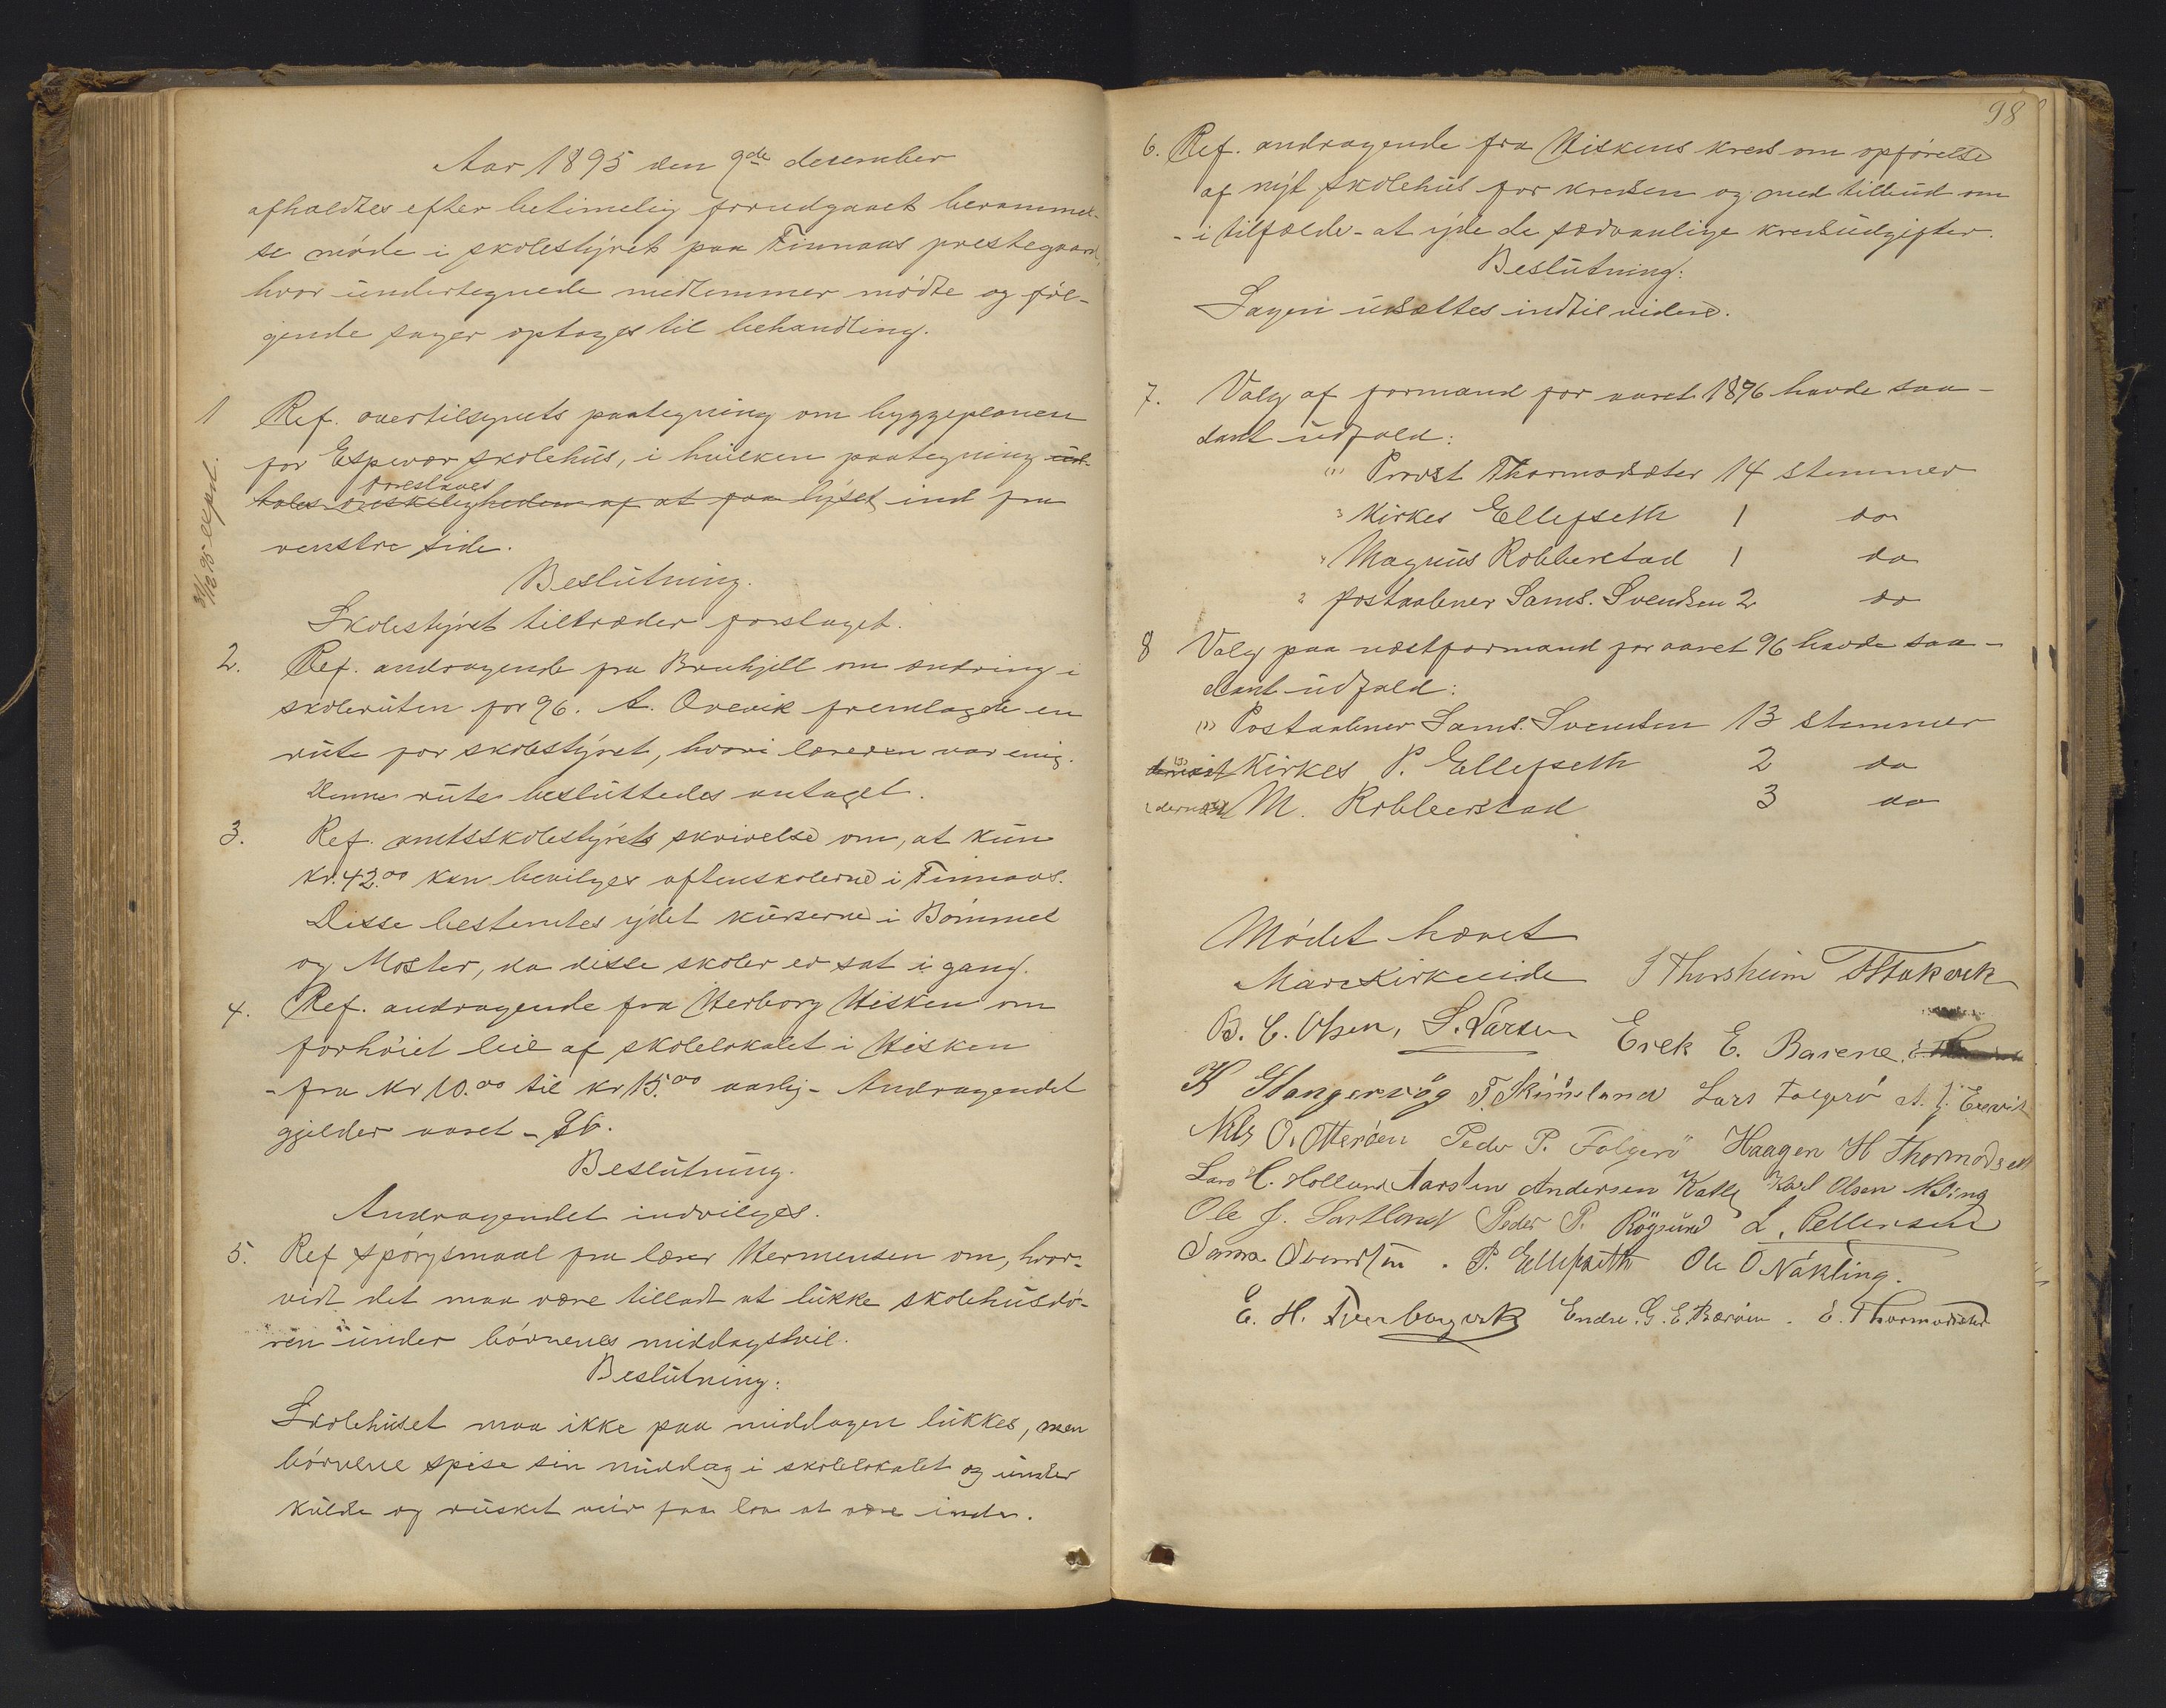 Aar 1895 den 9de desember
afholdtes efter betimelig forudgaaet berammel-
se møde i skolestyret paa Finnaas prestegaard,
hvor undertegnede medlemmer mødte og føl-
gende sager optoges til behandling.
1 Ref. overtilsynets paategning om byggeplanen
for Espevær skolehus, i hvilken paategning ud-
foreslaaes
tales ønskeligheden af at faa lyset ind fra
venstre side.
31/12 95 exped.
Beslutning.
Skolestyret tiltræder forslaget.
2. Ref. andragende fra Bruhjell om ændring i
skoleruten for 96. A. Orevik fremlagde en
rute for skolestyret, hvori læreren var enig.
Denne rute besluttedes antaget.
3. Ref. amtsskolestyrets skrivelse om, at kun
kr. 42.00 kan bevilges aftenskolerne i Finnaas.
Disse bestemtes ydet kurserne i Bømmel
og Moster, da disse skoler er sat i gang.
4. Ref. andragende fra Herborg Hisken om
forhøiet leie af skolelokalet i Hisken
- fra kr 10.00 til kr 15.00 aarlig - Andragendet
gjelder aaret - 96.
Beslutning.
Andragendet indvilges.
5. Ref spørgsmaal fra lærer Hermensen om, hvor-
vidt det maa være tilladt at lukke skolehusdø-
ren under børnenes middagshvil.
Beslutning:
Skolehuset maa ikke paa middagen lukkes, men
børnene spise sin middag i skolelokalet og under
kulde og rusket veir faa lov at være inde.
98
6. Ref. andragende fra Hiskens kreds om opførelse
af nyt skolehus for kredsen og med tilbud om
- i tilfælde - at yde de sædvanlige kredsudgifter.
Beslutning:
Sagen udsættes indtil videre.
7. Valg af formand for aaret 1896 havde saa-
dant udfald:
Provst Thormodsæter 14 stemmer
Kirkes Ellefseth 1 do
Magnus Robberstad 1 do
postaabner Sams. Svendsen 2 do
8 Valg paa næstformand for aaret 96 havde saa-
dant udfald:
Postaabner Sams. Svendsen 13 stemmer
Kirkes P. Ellefseth 2 do
dernæst M. Robberstad 3 do
Mødet hævet
Mars Kirkeeide J Thorsheim
B. C. Olsen, S. Larsen Erek E. Barene
K Stangervåg T. Skimeland Lars Folgerø
Nils O. Otterøen Peder P. Folgerø Haagen H Thormodsæt
Lars H. Holland Aarsten Andersen Katle Karl Olsen
Ole J. Sortland Peder P. Røgsund L. Pettersen
Sams. Svendsen. P. Ellefseth Ole O Nakling.
E. H. Endre. G. E Bærøen. E. Thormodsæter